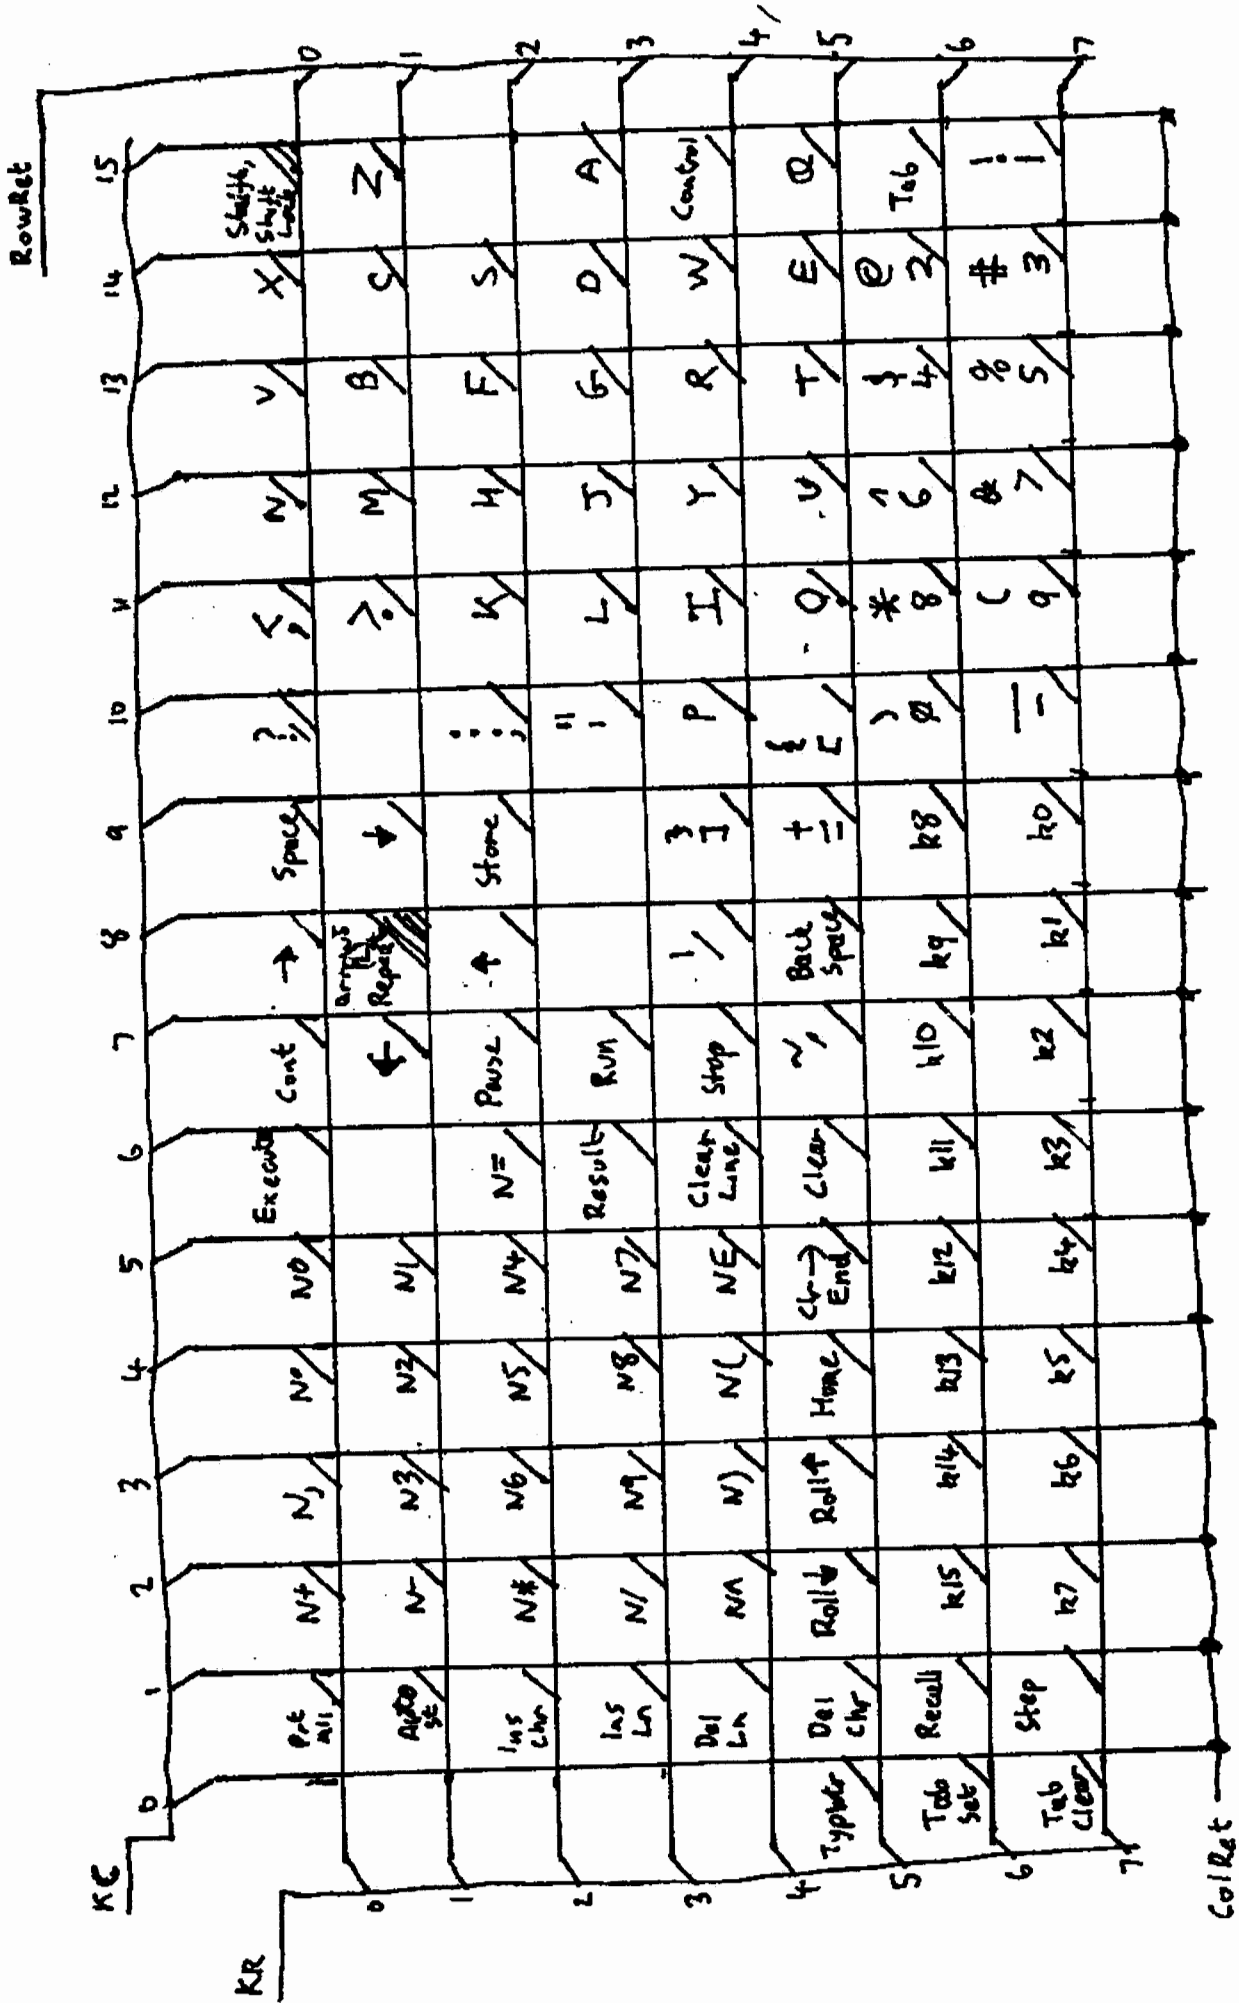 RowRet
KC
0 1 2 3 4 5 6 7 8 9 10 11 12 13 14 15
KR
0 Prt All N+ N, N. N0 Execute Cont → Space ? / < , N V X Shift, Shift Lock 0
1 Auto St N- N3 N2 N1 ← Repeat ↓ > . M B C Z 1
2 Ins Chr N* N6 N5 N4 N= Pause ↑ Store : ; K H F S 2
3 Ins Ln N/ N9 N8 N7 Result Run " ' L J G D A 3
4 Del Ln N^ N) N( NE Clear Line Stop | / } ] P I Y R W Control 4
5 Typwtr Del Chr Roll↓ Roll↑ Home Cl→ End Clear ~ ` Back Space + = { [ O U T E Q 5
6 Tab Set Recall k15 k14 k13 k12 k11 k10 k9 k8 ) 0 * 8 ^ 6 $ 4 @ 2 Tab 6
7 Tab Clear Step k7 k6 k5 k4 k3 k2 k1 k0 _ - ( 9 & 7 % 5 # 3 ! 1 7
ColRet